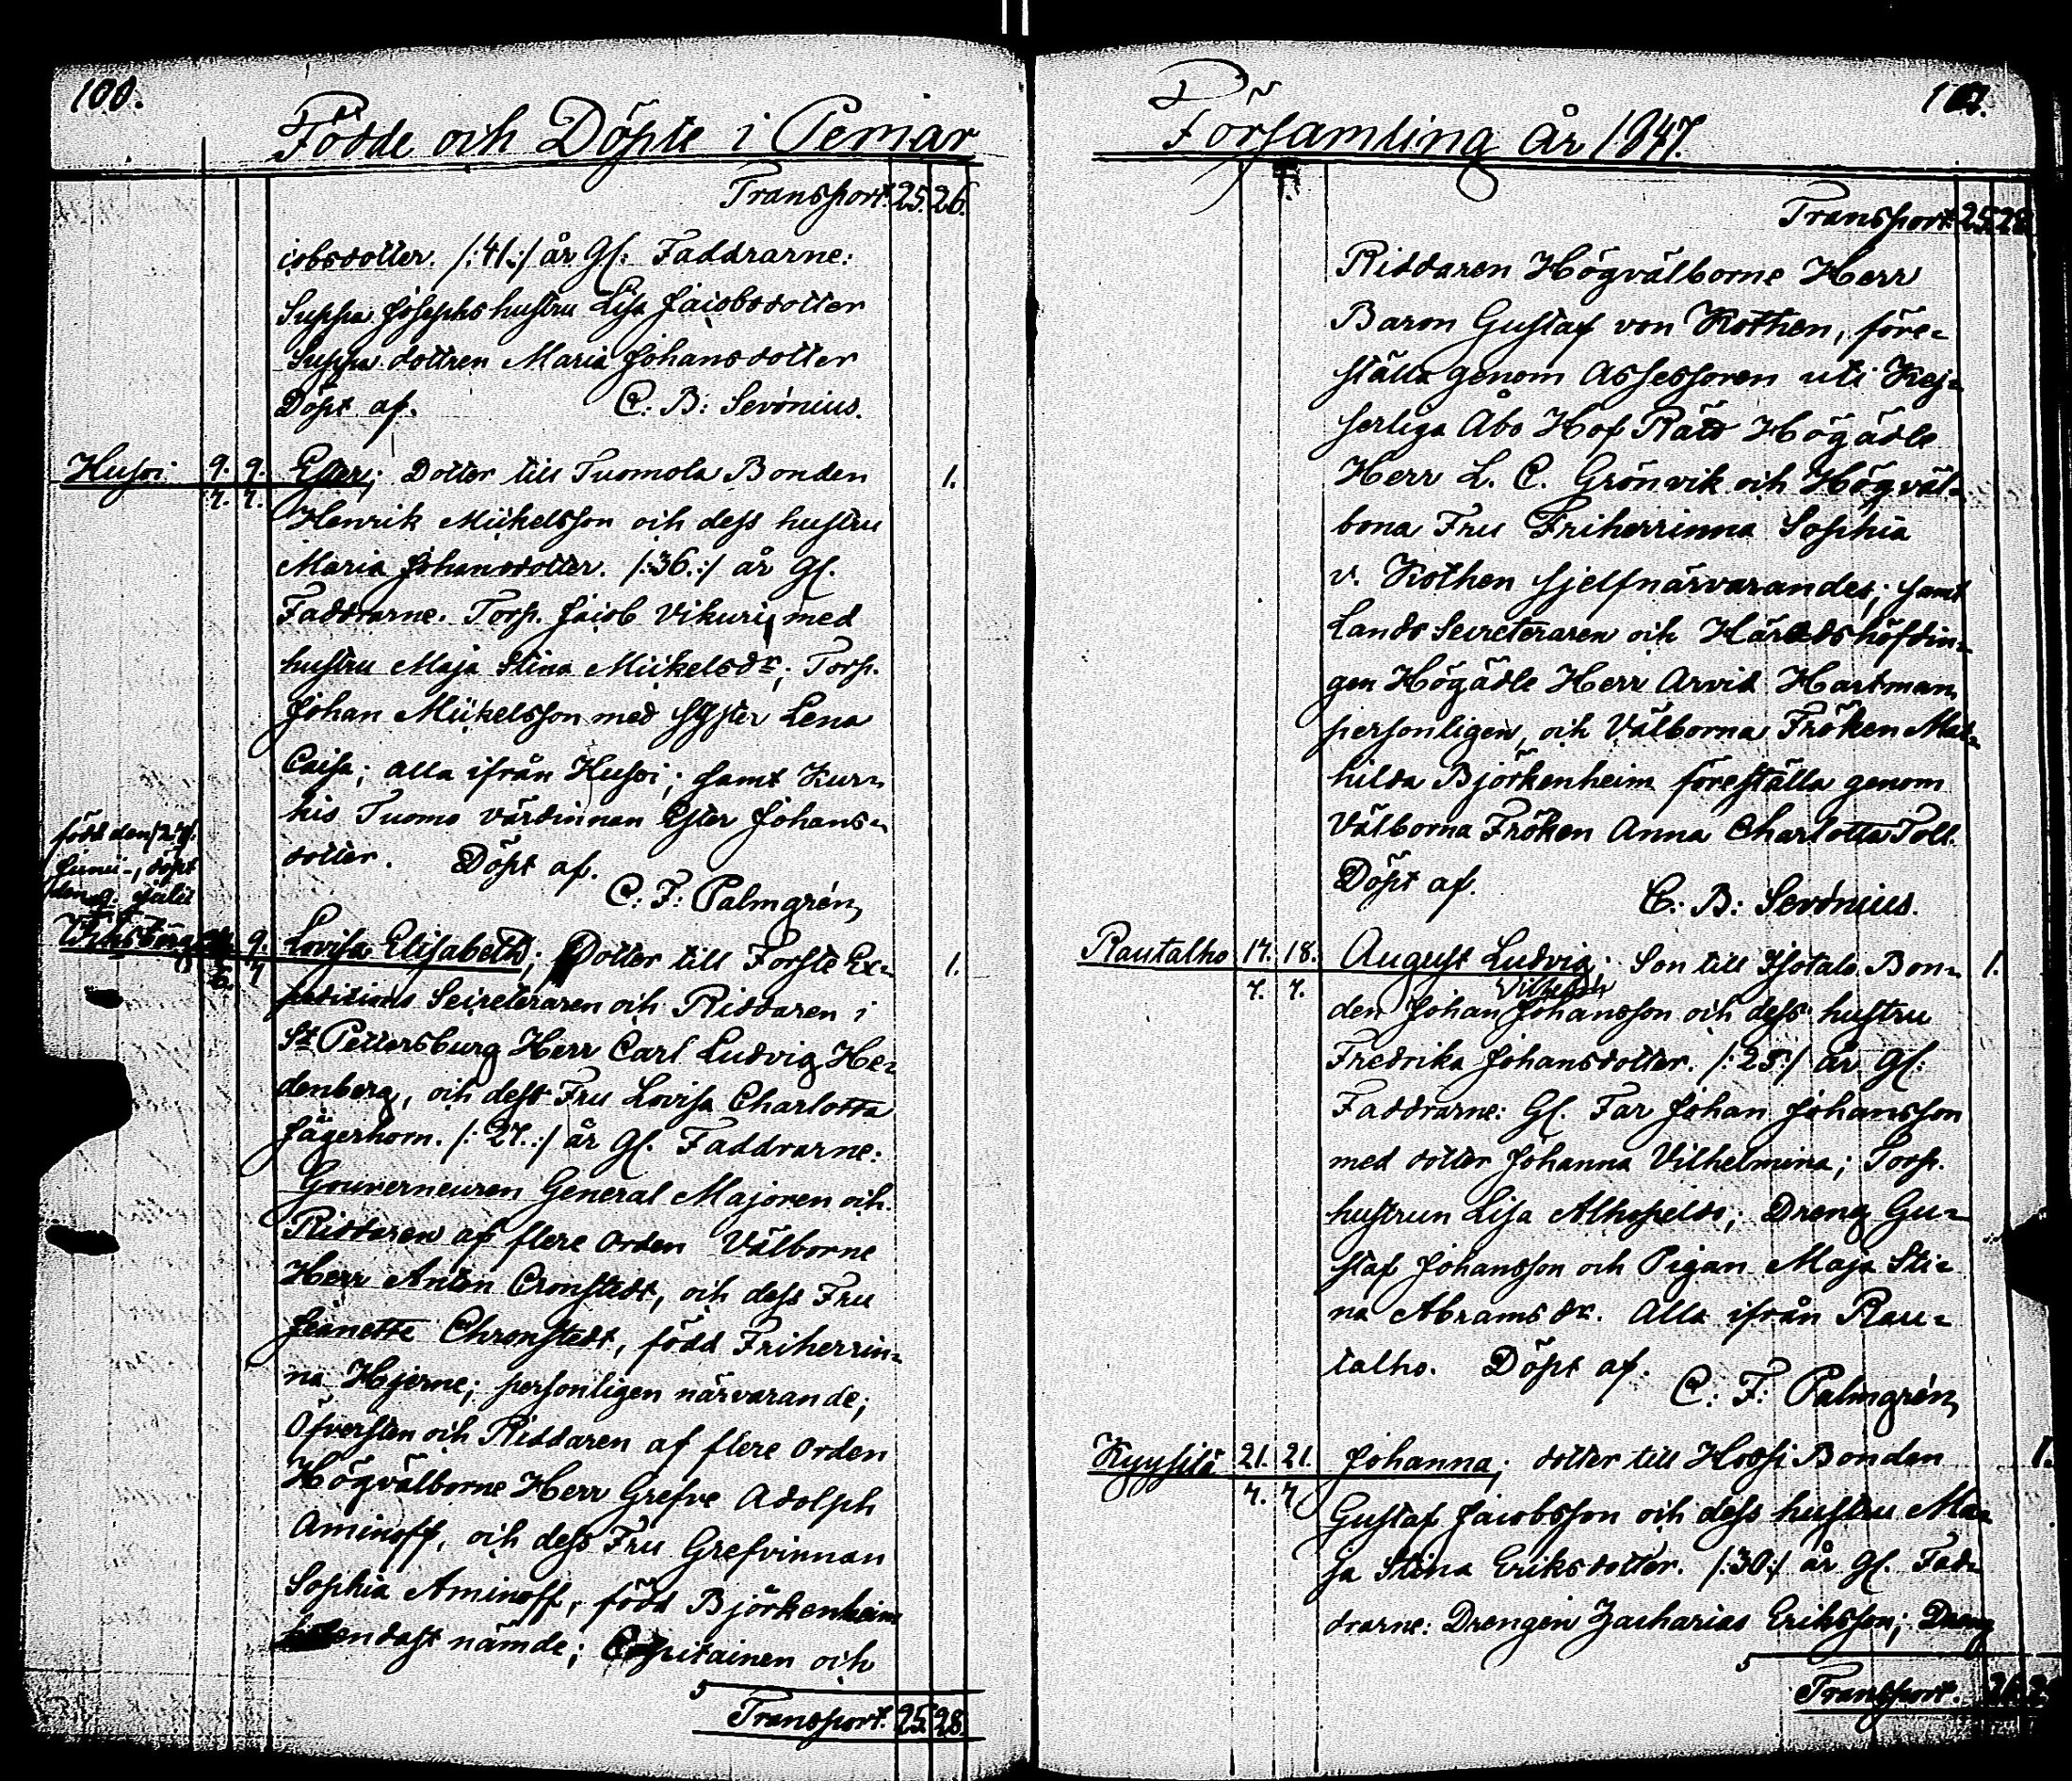 100.
Födde och Döpte i Pemar
Transport. 25. 26.
cobsdotter. /:41:/ år Gl: Faddrarne:
Suppa Josephs hustru Lisa Jacobsdotter
Suppa dottren Maria Johansdotter
Döpt af. C: B: Serónius.
Husoi 9. 9. Ester; Dotter till Tuomola Bonden 1.
7. 7. Henrik Mickelsson och dess hustru
Maria Johansdotter. /:36.:/ år Gl.
Faddrarne. Torp. Jacob Vikuri med
hustru Maja Stina Mickelsdr; Torp.
Johan Mickelsson med syster Lena
Caisa; alla ifrån Husoi; samt Kur=
kis Tuomo värdinnan Ester Johans=
dotter. Döpt af.
C: F: Palmgrén
född den
Junii, döpt
den 9. Julii
Viksberg 9. Lovisa Elisabeth; Dotter till Förste Ex= 1.
6. 7 peditions Secreteraren och Riddaren i
St Pettersburg Herr Carl Ludvig He=
denberg, och dess Fru Lovisa Charlotta
Jägerhorn. /:27.:/ år Gl. Faddrarne:
Gouverneuren General Majoren och
Riddaren af flere Orden Välborne
Herr Anton Cronstedt, och dess Fru
Jeanette Chronstedt, född Friherrin=
na Hjerne; personligen närvarande;
Öfversten och Riddaren af flere Orden
Högvälborne Herr Grefve Adolph
Aminoff, och dess Fru Grefvinnan
Sophia Aminoff, född Björkenheim
endast nämde; Capitainen och
Transport. 25. 28.
Församling År 1847.
Transport. 25. 28
Riddaren Högvälborne Herr
Baron Gustaf von Kothen, före=
ställa genom Assessoren uti Kej=
serliga Åbo Hof Rätt Högädle
Herr L. C. Grönvik och Högväl=
borna Fru Friherrinna Sophia
v. Kothen sjelfnärvarandes; samt
Lands Secreteraren och Häradshöfdin=
gen Högädle Herr Arvid Hartman
personligen, och Välborna Fröken Mat=
hilda Björkenheim föreställa genom
Välborna Fröken Anna Charlotta Toll.
Döpt af. C: B: Serónius.
Rautalho 17. 18. August Ludvig; Son till Isotalo Bon= 1.
Vilhelm
7. 7. den Johan Johansson och dess hustru
Fredrika Johansdotter. /:25:/ år Gl:
Faddrarne: Gl. Far Johan Johansson
med dotter Johanna Vilhelmina; Torp.
hustrun Lisa Alhopeldo; Dreng Gu=
staf Johansson och Pigan Maja Sti=
na Abramsdr. Alla ifrån Rau=
talho. Döpt af.
C: F: Palmgrén
Kyysilä 21. 21. Johanna; dotter till Hossi Bonden 1.
7. 7 Gustaf Jacobsson och dess hustru Ma=
ja Stina Eriksdotter. /:30:/ år Gl. Fad=
drarne: Drengen Zacharias Eriksson; Dreng
Transport. 26.